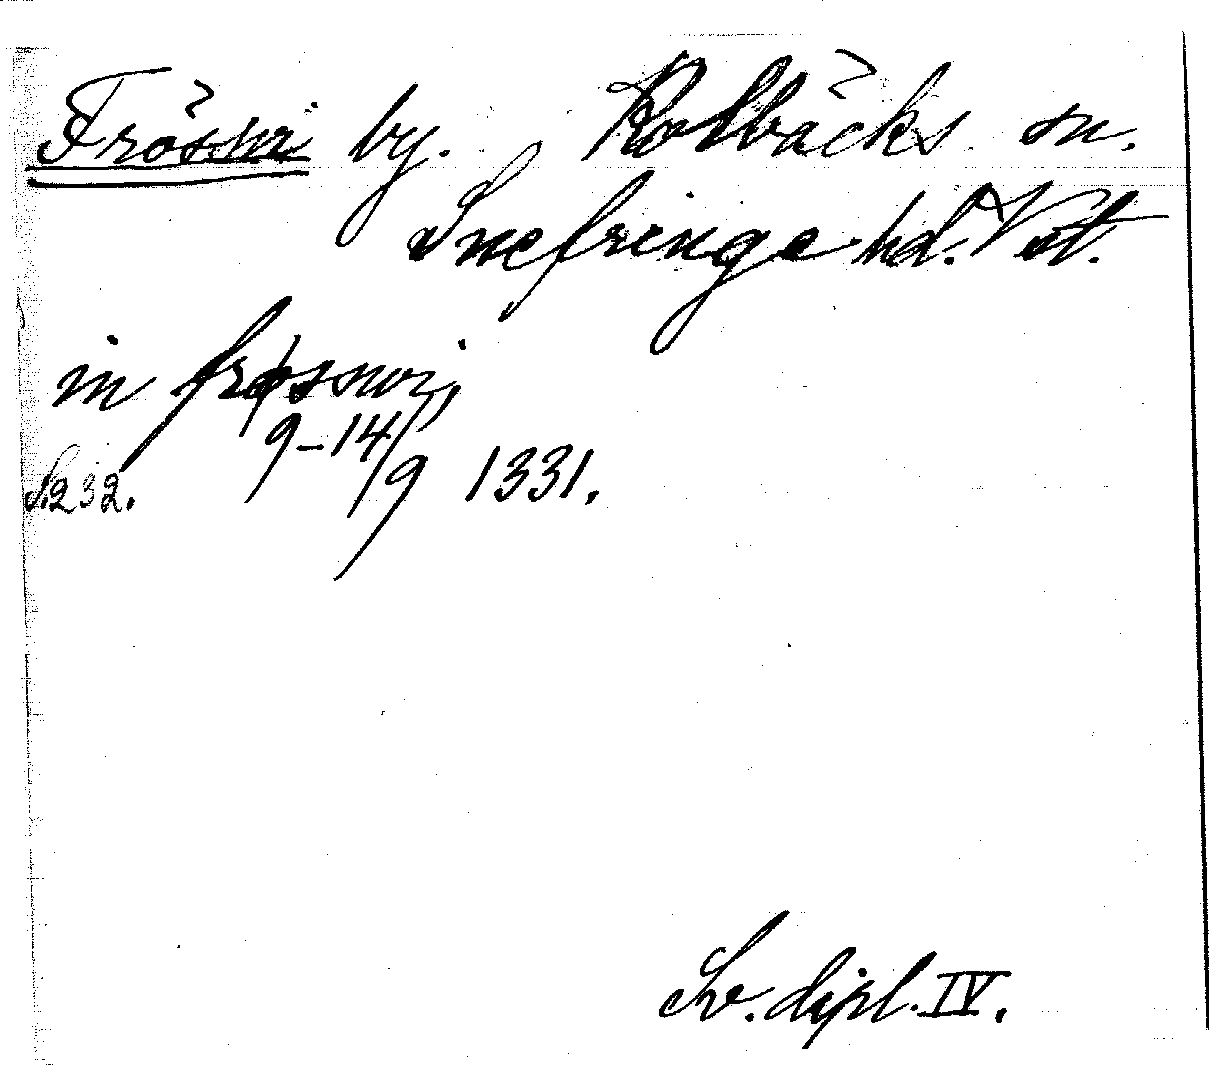 Frössvi by. Kolbäcks sn.
Snefringe hd. Vstl.
in frøsswi,
S. 232. 9-14/9 1331.
Sv. dipl. IV.